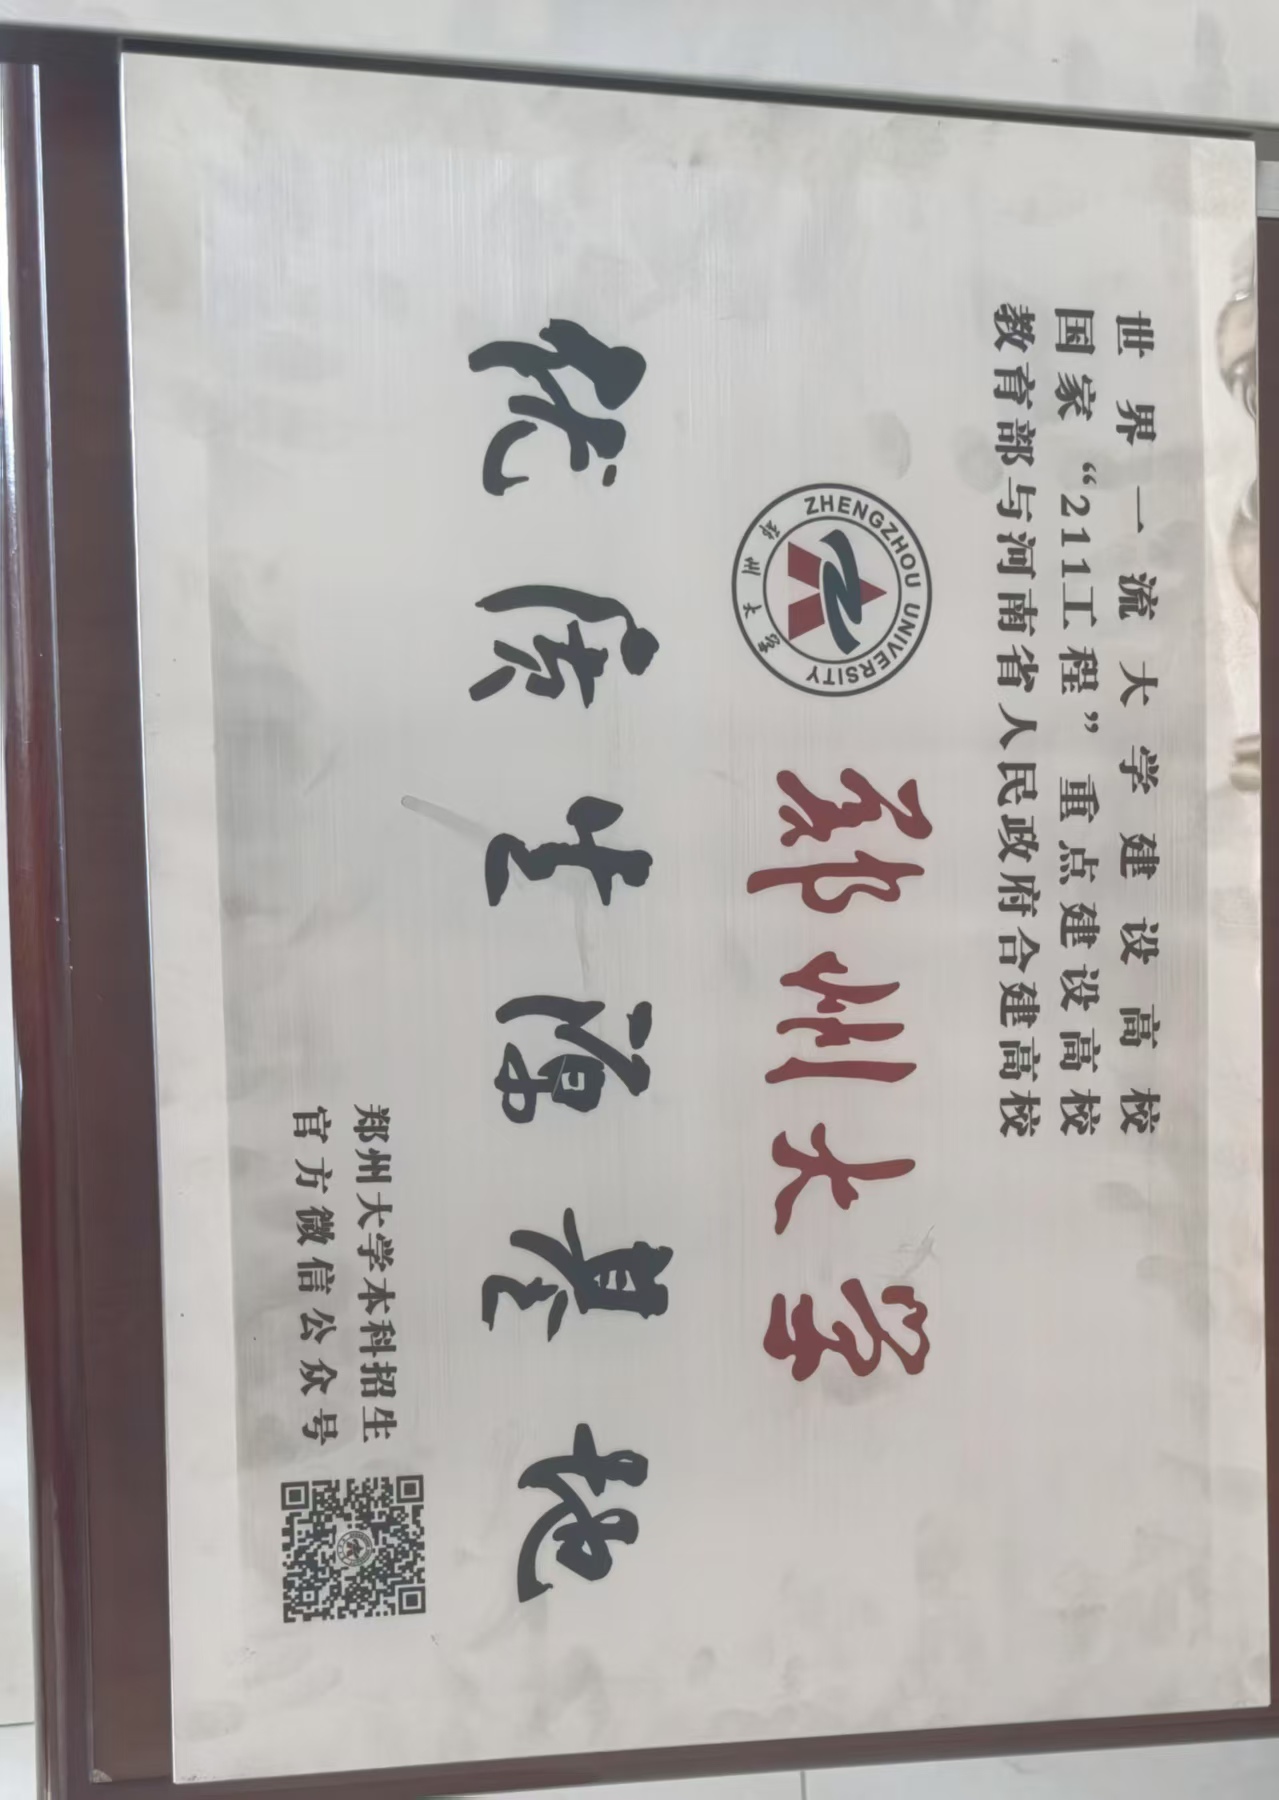 世界一流大学建设高校
国家“211工程”重点建设高校
教育部与河南省人民政府合建高校
ZHENGZHOU UNIVERSITY
郑州大学
郑州大学
优质生源基地
郑州大学本科招生
官方微信公众号